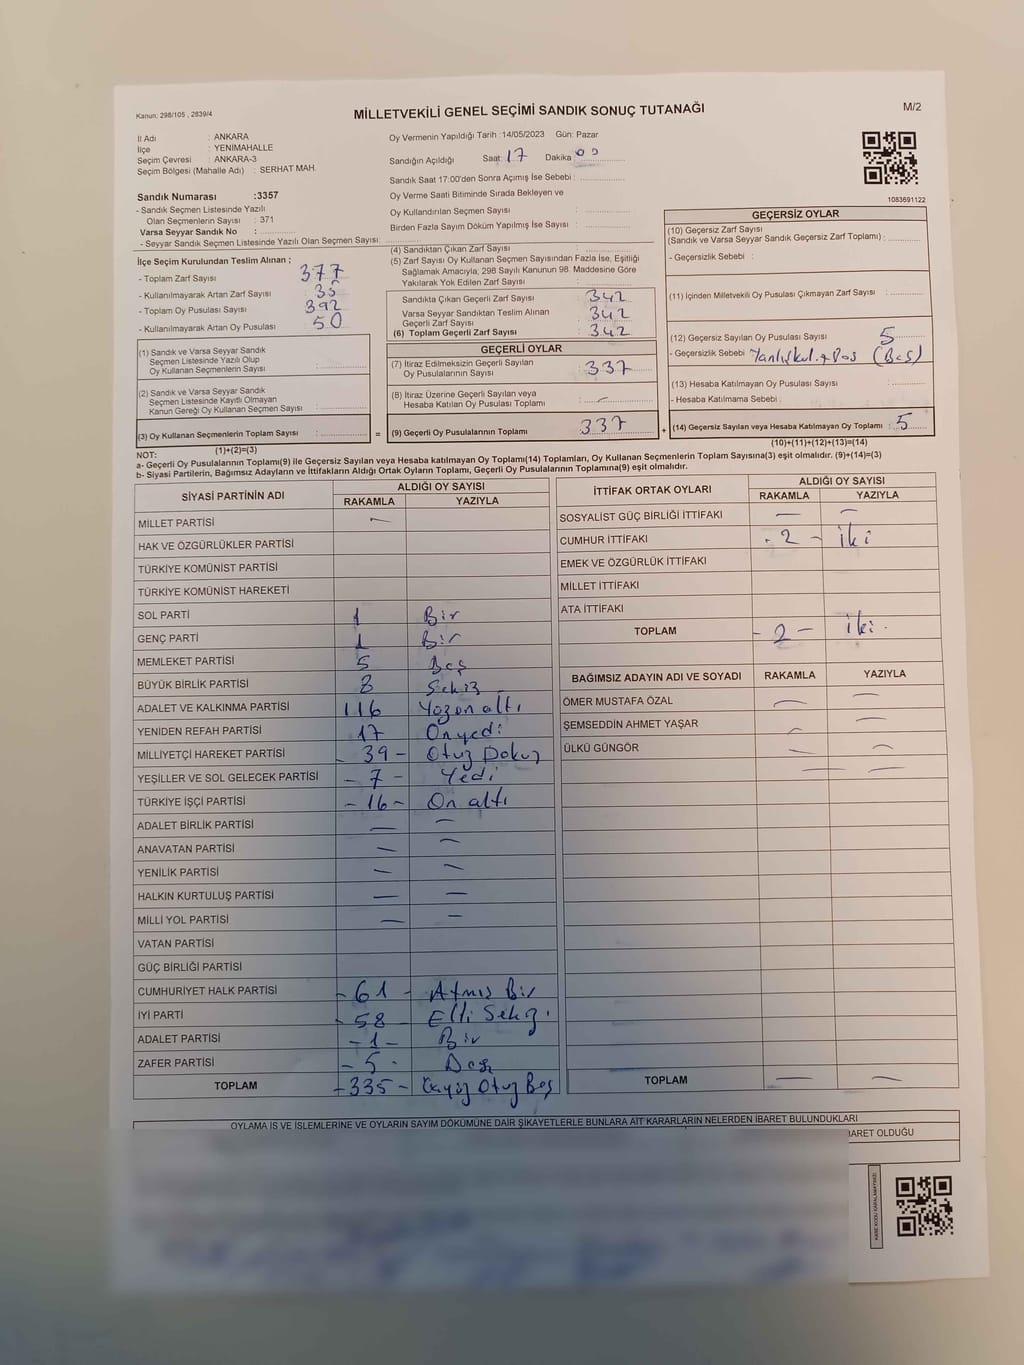 Kanun: 298/105 , 2839/4
MİLLETVEKİLİ GENEL SEÇİMİ SANDIK SONUÇ TUTANAĞI
M/2
İl Adı : ANKARA
İlçe : YENİMAHALLE
Seçim Çevresi : ANKARA-3
Seçim Bölgesi (Mahalle Adı) : SERHAT MAH.
Sandık Numarası :3357
- Sandık Seçmen Listesinde Yazılı
Olan Seçmenlerin Sayısı : 371
Varsa Seyyar Sandık No :
- Seyyar Sandık Seçmen Listesinde Yazılı Olan Seçmen Sayısı:
Oy Vermenin Yapıldığı Tarih :14/05/2023 Gün: Pazar
Sandığın Açıldığı Saat: 17 Dakika: 00
Sandık Saat 17:00'den Sonra Açımış İse Sebebi :
Oy Verme Saati Bitiminde Sırada Bekleyen ve
Oy Kullandırılan Seçmen Sayısı :
Birden Fazla Sayım Döküm Yapılmış İse Sayısı :
1083691122
İlçe Seçim Kurulundan Teslim Alınan ;
- Toplam Zarf Sayısı : 377
- Kullanılmayarak Artan Zarf Sayısı : 35
- Toplam Oy Pusulası Sayısı : 392
- Kullanılmayarak Artan Oy Pusulası : 50
(1) Sandık ve Varsa Seyyar Sandık
Seçmen Listesinde Yazılı Olup
Oy Kullanan Seçmenlerin Sayısı :
(2) Sandık ve Varsa Seyyar Sandık
Seçmen Listesinde Kayıtlı Olmayan
Kanun Gereği Oy Kullanan Seçmen Sayısı :
(3) Oy Kullanan Seçmenlerin Toplam Sayısı :
(1)+(2)=(3)
(4) Sandıktan Çıkan Zarf Sayısı :
(5) Zarf Sayısı Oy Kullanan Seçmen Sayısından Fazla İse, Eşitliği
Sağlamak Amacıyla, 298 Sayılı Kanunun 98. Maddesine Göre
Yakılarak Yok Edilen Zarf Sayısı :
Sandıkta Çıkan Geçerli Zarf Sayısı : 342
Varsa Seyyar Sandıktan Teslim Alınan
Geçerli Zarf Sayısı : 342
(6) Toplam Geçerli Zarf Sayısı : 342
GEÇERLİ OYLAR
(7) İtiraz Edilmeksizin Geçerli Sayılan
Oy Pusulalarının Sayısı : 337
(8) İtiraz Üzerine Geçerli Sayılan veya
Hesaba Katılan Oy Pusulası Toplamı : -
= (9) Geçerli Oy Pusulalarının Toplamı : 337 +
GEÇERSİZ OYLAR
(10) Geçersiz Zarf Sayısı
(Sandık ve Varsa Seyyar Sandık Geçersiz Zarf Toplamı) :
- Geçersizlik Sebebi :
(11) İçinden Milletvekili Oy Pusulası Çıkmayan Zarf Sayısı :
(12) Geçersiz Sayılan Oy Pusulası Sayısı : 5
- Geçersizlik Sebebi : (Beş)
(13) Hesaba Katılmayan Oy Pusulası Sayısı :
- Hesaba Katılmama Sebebi :
(14) Geçersiz Sayılan veya Hesaba Katılmayan Oy Toplamı : 5
(10)+(11)+(12)+(13)=(14)
NOT:
a- Geçerli Oy Pusulalarının Toplamı(9) ile Geçersiz Sayılan veya Hesaba Katılmayan Oy Toplamı(14) Toplamları, Oy Kullanan Seçmenlerin Toplam Sayısına(3) eşit olmalıdır. (9)+(14)=(3)
b- Siyasi Partilerin, Bağımsız Adayların ve İttifakların Aldığı Ortak Oyların Toplamı, Geçerli Oy Pusulalarının Toplamına(9) eşit olmalıdır.
SİYASİ PARTİNİN ADI ALDIĞI OY SAYISI
RAKAMLA YAZIYLA
MİLLET PARTİSİ -
HAK VE ÖZGÜRLÜKLER PARTİSİ
TÜRKİYE KOMÜNİST PARTİSİ
TÜRKİYE KOMÜNİST HAREKETİ
SOL PARTİ 1 Bir
GENÇ PARTİ 1 Bir
MEMLEKET PARTİSİ 5 Beş
BÜYÜK BİRLİK PARTİSİ 8 Sekiz
ADALET VE KALKINMA PARTİSİ 116 Yüzonaltı
YENİDEN REFAH PARTİSİ 17 Onyedi
MİLLİYETÇİ HAREKET PARTİSİ - 39 - Otuz Dokuz
YEŞİLLER VE SOL GELECEK PARTİSİ - 7 - Yedi
TÜRKİYE İŞÇİ PARTİSİ - 16 - On altı
ADALET BİRLİK PARTİSİ - -
ANAVATAN PARTİSİ - -
YENİLİK PARTİSİ - -
HALKIN KURTULUŞ PARTİSİ - -
MİLLİ YOL PARTİSİ - -
VATAN PARTİSİ
GÜÇ BİRLİĞİ PARTİSİ
CUMHURİYET HALK PARTİSİ - 61 - Atmış Bir
İYİ PARTİ - 58 - Elli Sekiz
ADALET PARTİSİ - 1 - Bir
ZAFER PARTİSİ - 5 - Beş
TOPLAM - 335 - Üçyüz Otuz Beş
İTTİFAK ORTAK OYLARI ALDIĞI OY SAYISI
RAKAMLA YAZIYLA
SOSYALİST GÜÇ BİRLİĞİ İTTİFAKI - -
CUMHUR İTTİFAKI - 2 - iki
EMEK VE ÖZGÜRLÜK İTTİFAKI
MİLLET İTTİFAKI
ATA İTTİFAKI
TOPLAM - 2 - iki.
BAĞIMSIZ ADAYIN ADI VE SOYADI RAKAMLA YAZIYLA
ÖMER MUSTAFA ÖZAL - -
ŞEMSEDDİN AHMET YAŞAR - -
ÜLKÜ GÜNGÖR - -
- -
TOPLAM - -
OYLAMA İŞ VE İŞLEMLERİNE VE OYLARIN SAYIM DÖKÜMÜNE DAİR ŞİKAYETLERLE BUNLARA AİT KARARLARIN NELERDEN İBARET BULUNDUKLARI
BARET OLDUĞU
KARE KODU KARALAMAYINIZ!